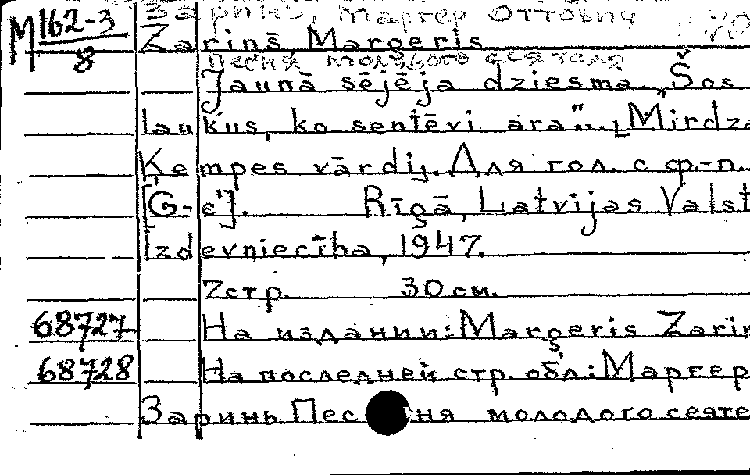 М 162-3
8
Заринь, Маргер Оттович
Zariņš, Marģeris
Песня молодого сеятеля
Jaunā sējēja dziesma „Šos
laukus, ko sentēvi ara". [Mirdzas
Ķempes vārdi]. Для гол. с ф.-п.
[G-e"]. Rīgā, Latvijas Valst
Izdevniecība, 1947.
7стр. 30 см.
68727 На издании: Marģeris Zariņ
68728 На последней стр. обл.: Маргер
Заринь Песня молодого сеяте